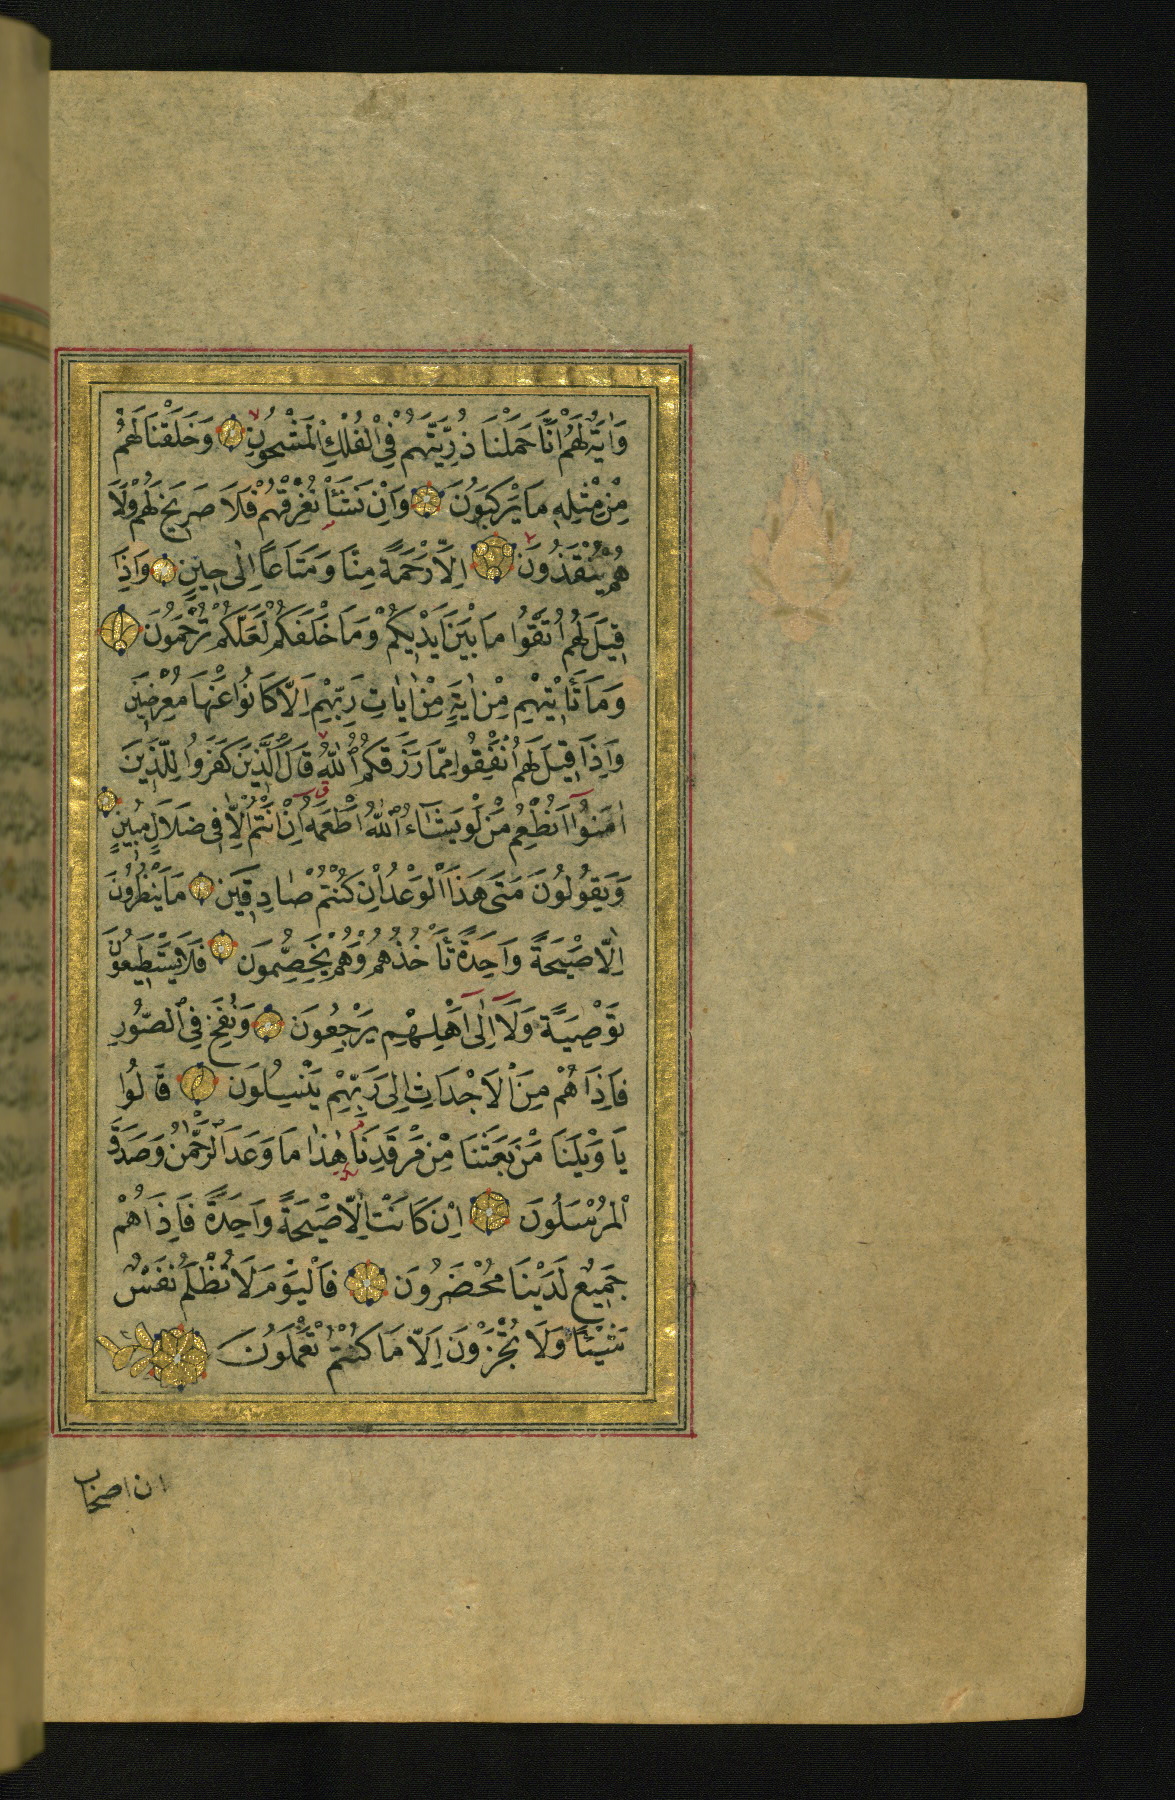 وَاٰيَةٌ لَهُمْ اَنَّا حَمَلْنَا ذُرِّيَّتَهُمْ فِي الْفُلْكِ الْمَشْحُونِ وَخَلَقْنَا لَهُمْ
مِنْ مِثْلِهٖ مَا يَرْكَبُونَ وَاِنْ نَشَأْ نُغْرِقْهُمْ فَلَا صَرِيخَ لَهُمْ وَلَا
هُمْ يُنْقَذُونَ اِلَّا رَحْمَةً مِنَّا وَمَتَاعًا اِلٰى حِينٍ وَاِذَا
قِيلَ لَهُمُ اتَّقُوا مَا بَيْنَ اَيْدِيكُمْ وَمَا خَلْفَكُمْ لَعَلَّكُمْ تُرْحَمُونَ
وَمَا تَأْتِيهِمْ مِنْ اٰيَةٍ مِنْ اٰيَاتِ رَبِّهِمْ اِلَّا كَانُوا عَنْهَا مُعْرِضِينَ
وَاِذَا قِيلَ لَهُمْ اَنْفِقُوا مِمَّا رَزَقَكُمُ اللّٰهُ قَالَ الَّذِينَ كَفَرُوا لِلَّذِينَ
اٰمَنُوا اَنُطْعِمُ مَنْ لَوْ يَشَاءُ اللّٰهُ اَطْعَمَهُ اِنْ اَنْتُمْ اِلَّا فِي ضَلَالٍ مُبِينٍ
وَيَقُولُونَ مَتَى هَذَا الْوَعْدُ اِنْ كُنْتُمْ صَادِقِينَ مَا يَنْظُرُونَ
اِلَّا صَيْحَةً وَاحِدَةً تَأْخُذُهُمْ وَهُمْ يَخِصِّمُونَ فَلَا يَسْتَطِيعُونَ
تَوْصِيَةً وَلَا اِلٰى اَهْلِهِمْ يَرْجِعُونَ وَنُفِخَ فِي الصُّورِ
فَاِذَا هُمْ مِنَ الْاَجْدَاثِ اِلٰى رَبِّهِمْ يَنْسِلُونَ قَالُوا
يَا وَيْلَنَا مَنْ بَعَثَنَا مِنْ مَرْقَدِنَا هٰذَا مَا وَعَدَ الرَّحْمٰنُ وَصَدَقَ
الْمُرْسَلُونَ اِنْ كَانَتْ اِلَّا صَيْحَةً وَاحِدَةً فَاِذَا هُمْ
جَمِيعٌ لَدَيْنَا مُحْضَرُونَ فَالْيَوْمَ لَا تُظْلَمُ نَفْسٌ
شَيْئًا وَلَا تُجْزَوْنَ اِلَّا مَا كُنْتُمْ تَعْمَلُونَ
ان اصحاب